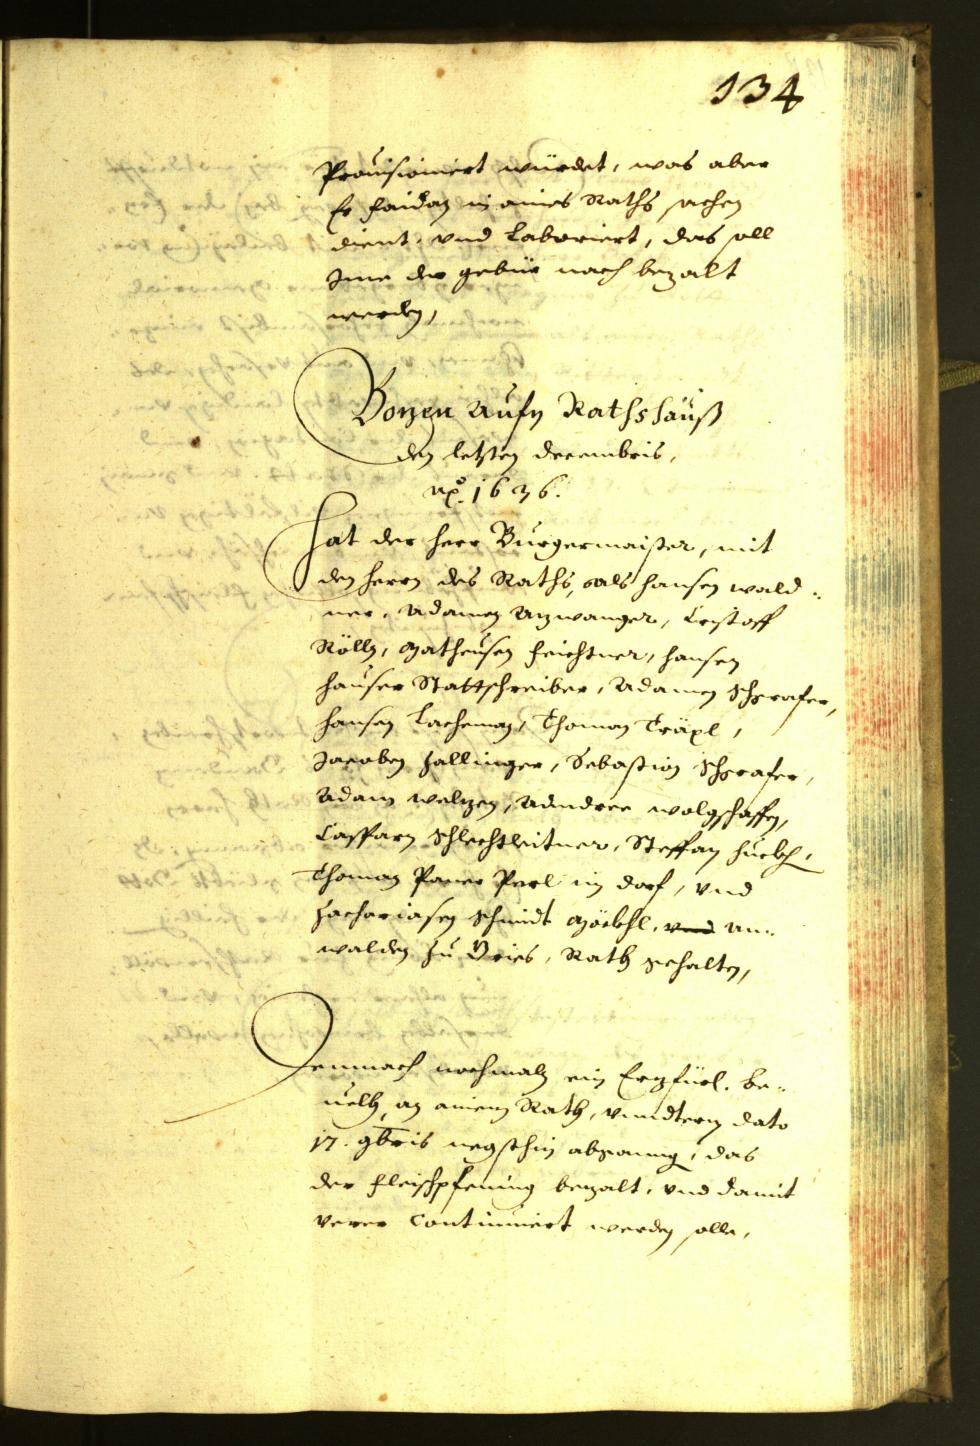 134
Prouisioniert würdet, was aber
Er Faidag in aines Raths sachen
dient, vnd Laboriert, das soll
Ime der gebür nach bezalt
werden,
Bozen aufn Rathshauß
den letsten decembris,
ao. 1636.
Hat der herr Burgermaister, mit
den herrn des Raths, als Hansen Wald-
ner, Adamen Azwanger, Cristoff
Rölln, Matheusen Feichtner, Hansen
Hauser Stattschreiber, Adamen Schgrafer,
Hansen Lachman, Thoman Träxl,
Jacoben Zallinger, Sebastion Schgrafer,
Adam Welzen, Anndree Wolgschaffen,
Casparn Schlechtleitner, Steffan Huebr,
Thoman Paner Perl im dorf, vnd
Zachariasen Schmidt Mörbhl, vnd An-
walden zu Gries, Rath gehalten,
Demnach nochmaln ein Erzfürl. be-
uelh an ainem Rath, vnndterm dato
17. 9bris negsthin abganng, das
der fleischpfening bezalt, vnd damit
verer Continuiert werden solle,